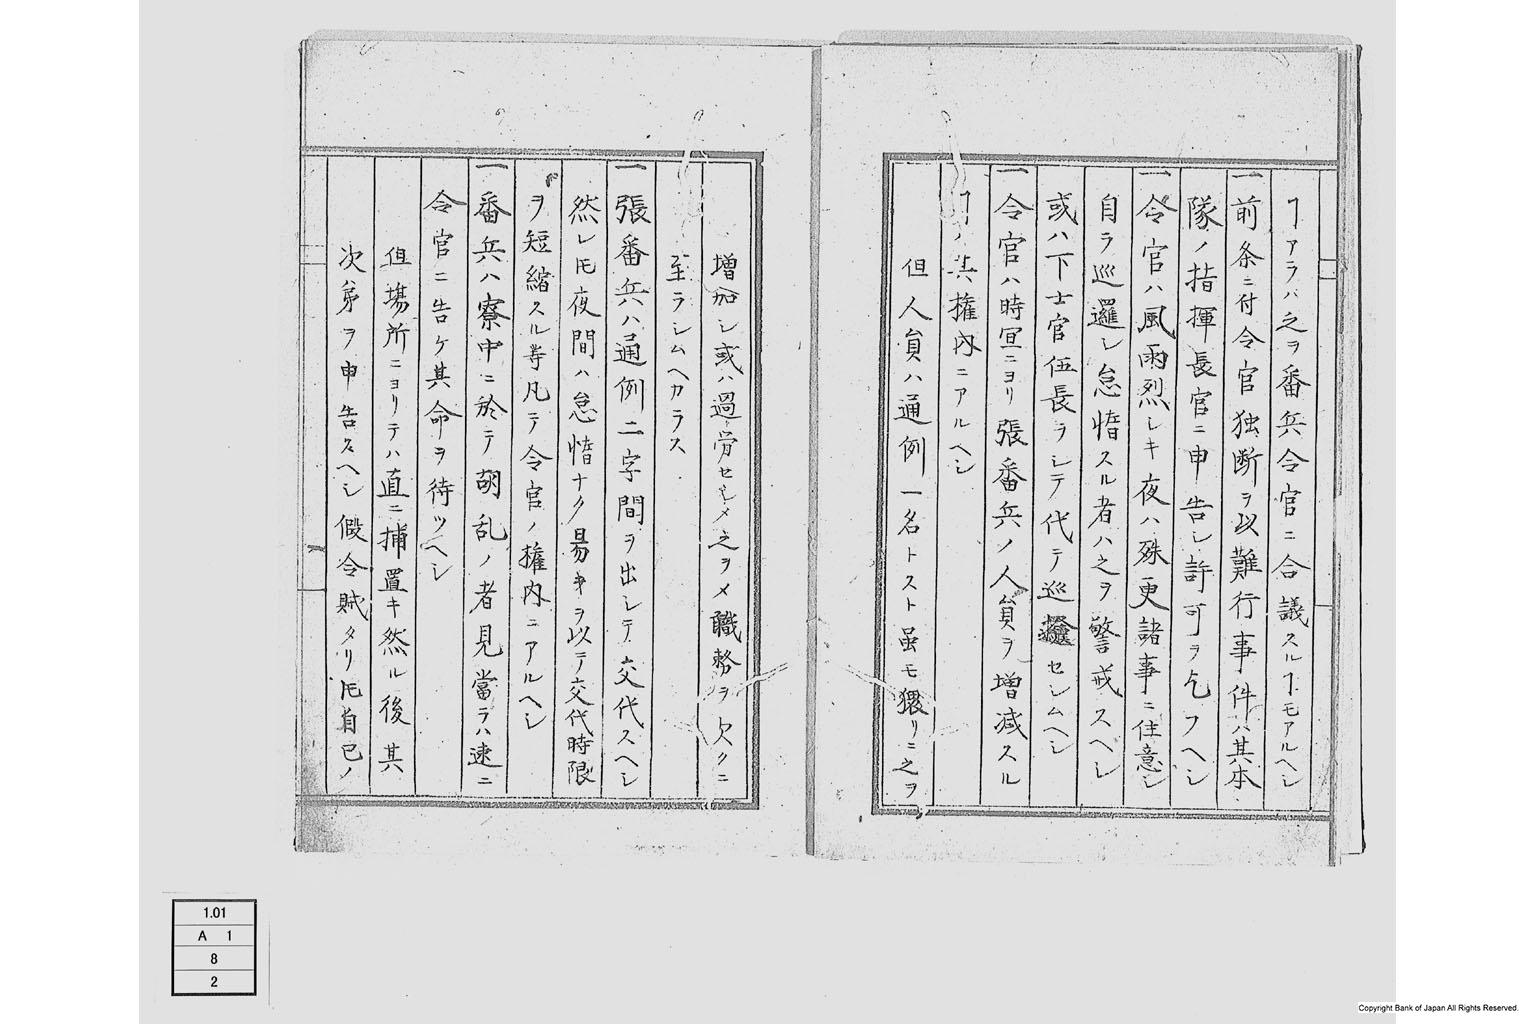 ヿアラハ之ヲ番兵令官ニ合議スルヿモアルヘシ
一前条ニ付令官独断ヲ以難行事件ハ其本
隊ノ指揮長官ニ申告シ許可ヲ乞フヘシ
一令官ハ風雨烈シキ夜ハ殊更諸事ニ注意シ
自ラ巡邏シ怠惰スル者ハ之ヲ警戒スヘシ
或ハ下士官伍長ヲシテ代テ巡邏セシムヘシ
一令官ハ時宜ニヨリ張番兵ノ人員ヲ増減スル
ヿノ其権内ニアルヘシ
但人員ハ通例一名トスト虽モ猥リニ之ヲ
増加シ或ハ過労セシメ之ヲメ職務ヲ欠クニ
至ラシムヘカラス
一張番兵ハ通例二字間ヲ出シテ交代スヘシ
然レ𪜈夜間ハ怠惰ナク易キヲ以テ交代時限
ヲ短縮スル等凡テ令官ノ権内ニアルヘシ
一番兵ハ寮中ニ於テ胡乱ノ者見當ラハ速ニ
令官ニ告ケ其命ヲ待ツヘシ
但場所ニヨリテハ直ニ捕置キ然ル後其
次第ヲ申告スヘシ假令賊タリ𪜈自己ノ
1.01
A 1
8
2
Copyright Bank of Japan All Rights Reserved.